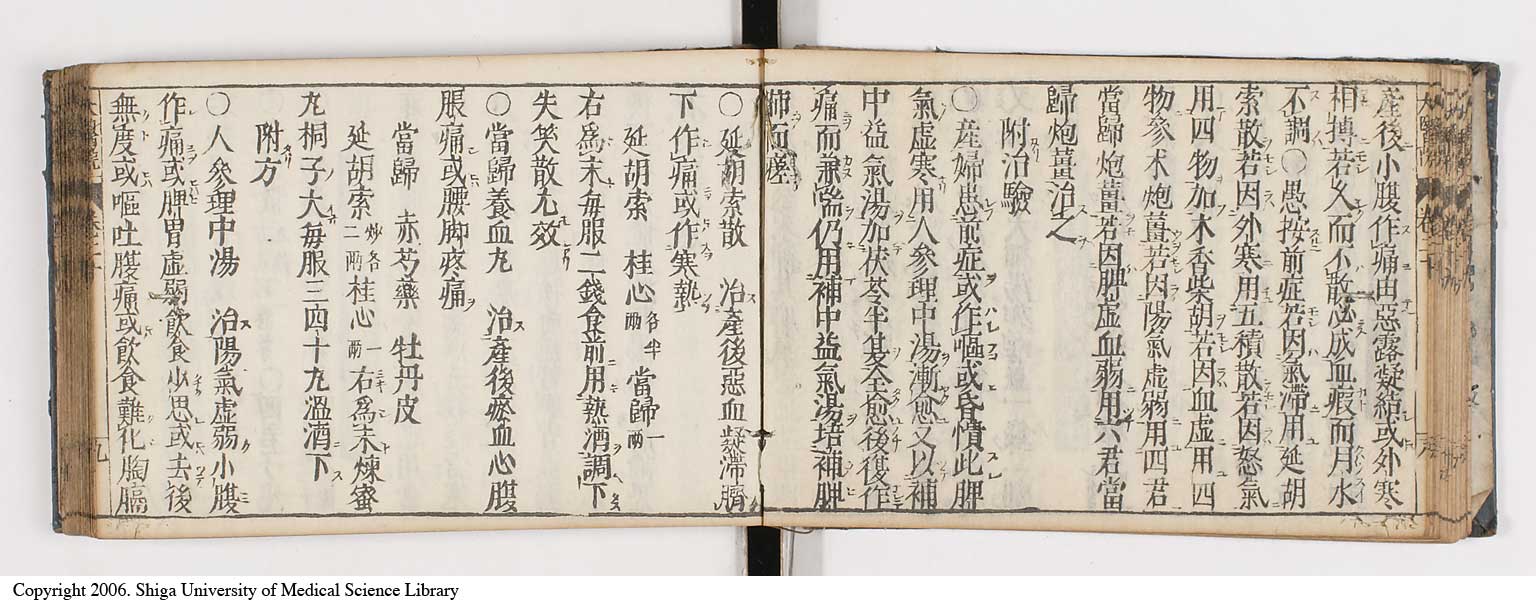 產後小腹作痛由惡露凝結或外寒
相搏若久而不散必成血瘕而月水
不調〇愚按前症若因氣滯用延胡
索散若因外寒用五積散若因怒氣
用四物加木香柴胡若因血虛用四
物參朮炮薑若因陽氣虛弱用四君
當歸炮薑若因脾虛血弱用六君當
歸炮薑治之
附治驗
〇產婦患前症或作嘔或昏憒此脾
氣虛寒用人參理中湯漸愈又以補
中益氣湯加茯苓半夏全愈後復作
痛而兼喘仍用補中益氣湯培補脾
肺而瘥
〇延胡索散 治產後惡血凝滯臍
下作痛或作寒熱
延胡索 桂心各半兩 當歸一兩
右爲末每服二錢食前用熱酒調下
失笑散尤效
〇當歸養血丸 治產後瘀血心腹
脹痛或腰脚疼痛
當歸 赤芍藥 牡丹皮
延胡索炒各二兩 桂心一兩 右爲末煉蜜
丸桐子大每服三四十丸溫酒下
附方
〇人參理中湯 治陽氣虛弱小腹
作痛或脾胃虛弱飲食少思或去後
無度或嘔吐腹痛或飲食難化胸膈
卷二十
九
Copyright 2006. Shiga University of Medical Science Library